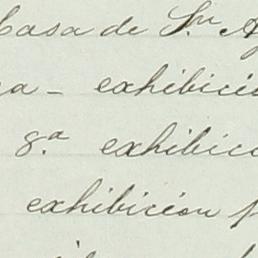 Casa de Sn. A
a - exhibició
8.a exhibici
exhibicion p